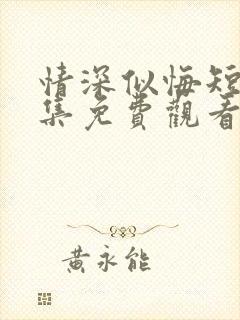 情深似悔短
集免費觀看
黃永能